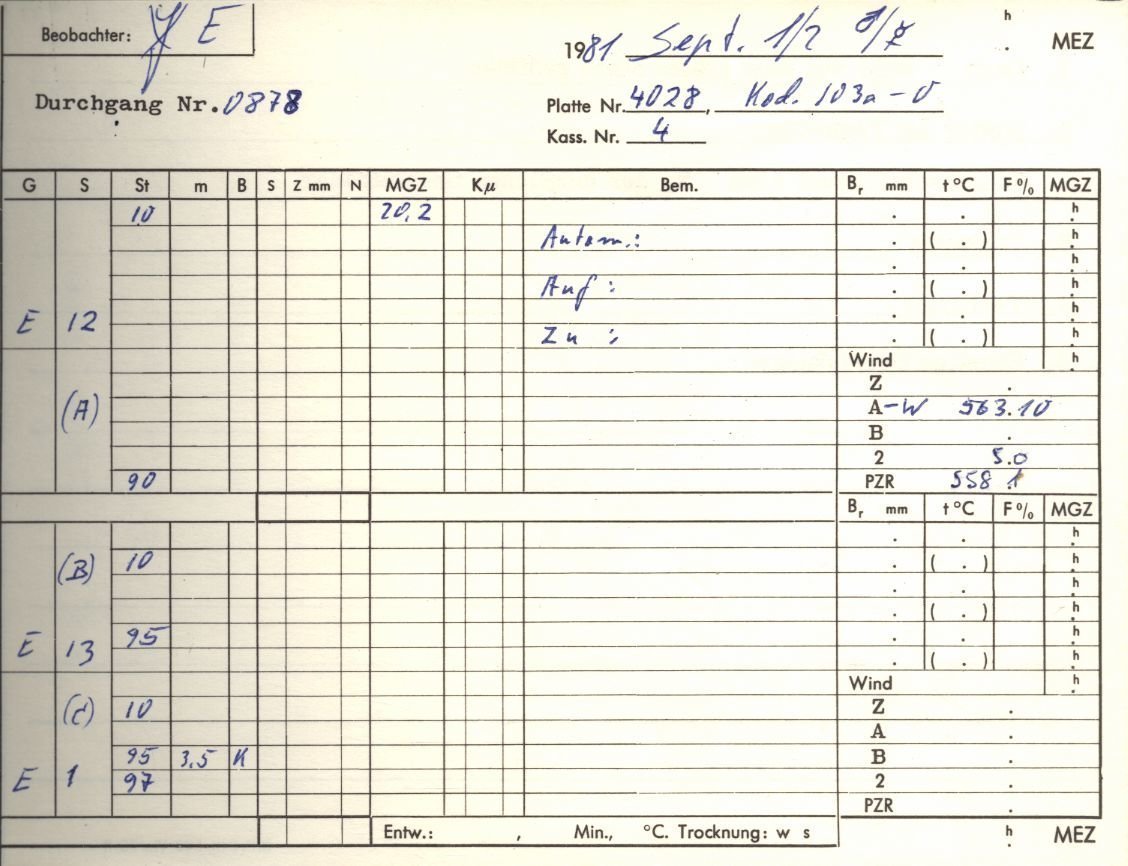 Beobachter: E
1981 Sept. 1/2 ♂/☿ h . MEZ
Durchgang Nr. 0878
Platte Nr. 4028, Kod. 103a-O
Kass. Nr. 4
G S St m B S Z mm N MGZ Kμ Bem. Br mm t °C F% MGZ
10 20,2 . . h
Autom.: . ( . ) h
. . h
Auf : . ( . ) h
E 12 . . h
Zu : . ( . ) h
Wind h
Z .
(A) A-W 563.10
B .
2 5.0
90 PZR 558.1
Br mm t °C F% MGZ
. . h
(B) 10 . ( . ) h
. . h
. ( . ) h
E 13 95 . . h
. ( . ) h
Wind h
(C) 10 Z .
A
95 3,5 K B .
E 1 97 2 .
PZR .
Entw.: , Min., °C. Trocknung: w s h . MEZ